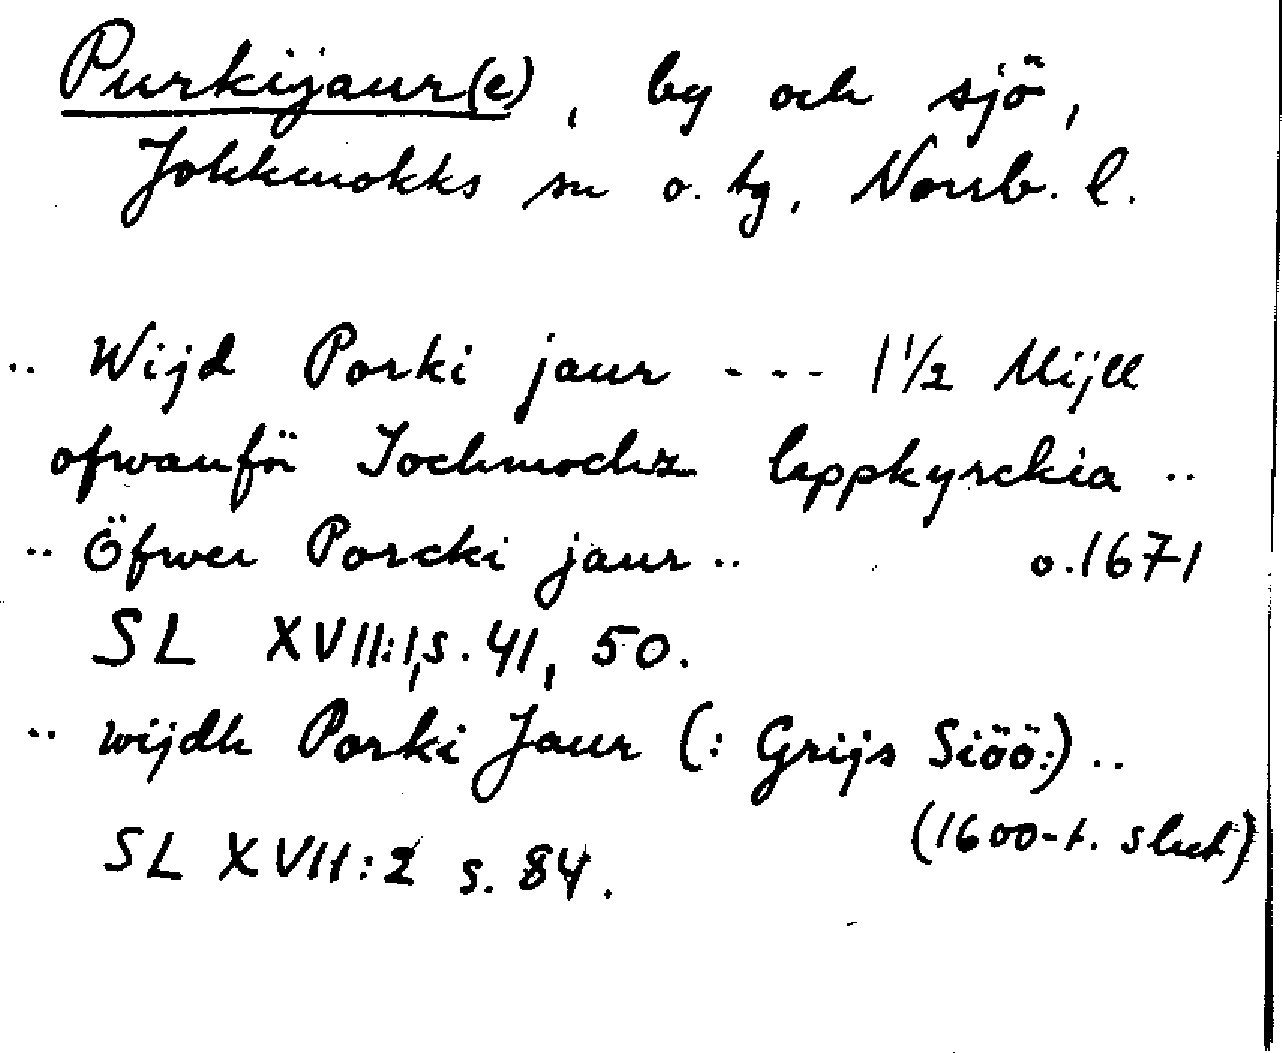 Purkijaur(e), by och sjö,
Jokkmokks sn o. tg, Norrb. l.
.. Wijd Porki jaur --- 1 1/2 Mijll
ofwanför Jochmochz lappkyrckia ..
.. Öfwer Porcki jaur .. o.1671
SL XVII:1, s. 41, 50.
.. wijdh Porki Jaur (: Grijs Siöö:) ..
(1600-t. slut)
SL XVII:2 s. 84.